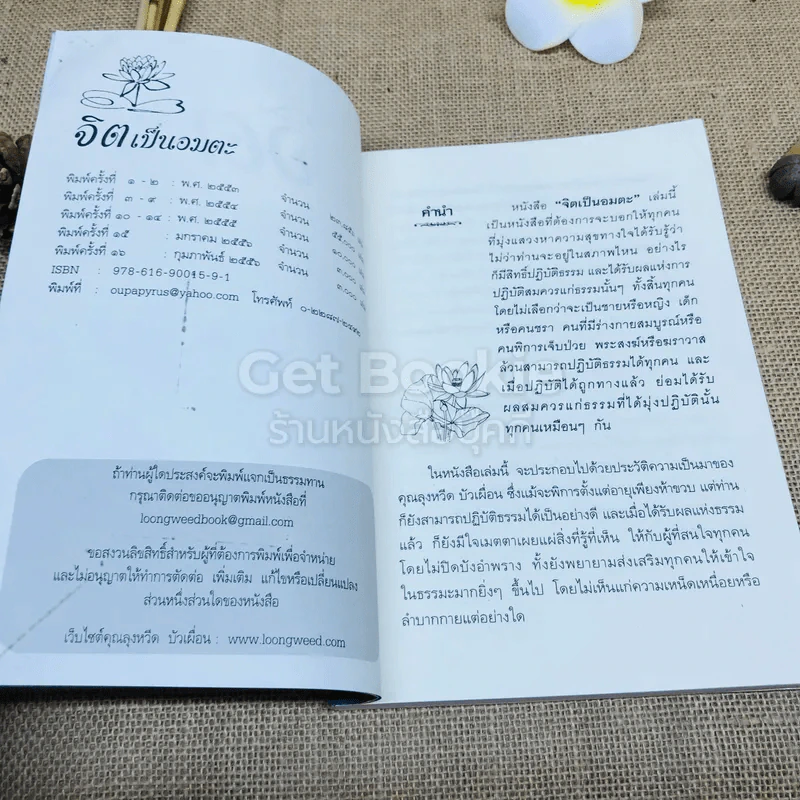 จิตเป็นอมตะ
พิมพ์ครั้งที่ ๑ - ๒ : พ.ศ. ๒๕๕๓ จำนวน
พิมพ์ครั้งที่ ๓ - ๙ : พ.ศ. ๒๕๕๔ จำนวน
พิมพ์ครั้งที่ ๑๐ - ๑๔ : พ.ศ. ๒๕๕๕ จำนวน
พิมพ์ครั้งที่ ๑๕ : มกราคม ๒๕๕๖ จำนวน
พิมพ์ครั้งที่ ๑๖ : กุมภาพันธ์ ๒๕๕๖ จำนวน ๓,๐๐๐
ISBN : 978-616-90015-9-1
พิมพ์ที่ : oupapyrus@yahoo.com โทรศัพท์
ถ้าท่านผู้ใดประสงค์จะพิมพ์แจกเป็นธรรมทาน
กรุณาติดต่อขออนุญาตพิมพ์หนังสือที่
loongweedbook@gmail.com
ขอสงวนลิขสิทธิ์สำหรับผู้ที่ต้องการพิมพ์เพื่อจำหน่าย
และไม่อนุญาตให้ทำการตัดต่อ เพิ่มเติม แก้ไขหรือเปลี่ยนแปลง
ส่วนหนึ่งส่วนใดของหนังสือ
เว็บไซต์คุณลุงหวีด บัวเผื่อน : www.loongweed.com
คำนำ
หนังสือ “จิตเป็นอมตะ” เล่มนี้
เป็นหนังสือที่ต้องการจะบอกให้ทุกคน
ที่มุ่งแสวงหาความสุขทางใจได้รับรู้ว่า
ไม่ว่าท่านจะอยู่ในสภาพไหน อย่างไร
ก็มีสิทธิ์ปฏิบัติธรรม และได้รับผลแห่งการ
ปฏิบัติสมควรแก่ธรรมนั้นๆ ทั้งสิ้นทุกคน
โดยไม่เลือกว่าจะเป็นชายหรือหญิง เด็ก
หรือคนชรา คนที่มีร่างกายสมบูรณ์หรือ
คนพิการเจ็บป่วย พระสงฆ์หรือฆราวาส
ล้วนสามารถปฏิบัติธรรมได้ทุกคน และ
เมื่อปฏิบัติได้ถูกทางแล้ว ย่อมได้รับ
ผลสมควรแก่ธรรมที่ได้มุ่งปฏิบัตินั้น
ทุกคนเหมือนๆ กัน
ในหนังสือเล่มนี้ จะประกอบไปด้วยประวัติความเป็นมาของ
คุณลุงหวีด บัวเผื่อน ซึ่งแม้จะพิการตั้งแต่อายุเพียงห้าขวบ แต่ท่าน
ก็ยังสามารถปฏิบัติธรรมได้เป็นอย่างดี และเมื่อได้รับผลแห่งธรรม
แล้ว ก็ยังมีใจเมตตาเผยแผ่สิ่งที่รู้ที่เห็น ให้กับผู้ที่สนใจทุกคน
โดยไม่ปิดบังอำพราง ทั้งยังพยายามส่งเสริมทุกคนให้เข้าใจ
ในธรรมะมากยิ่งๆ ขึ้นไป โดยไม่เห็นแก่ความเหน็ดเหนื่อยหรือ
ลำบากกายแต่อย่างใด
Get Bookie
ร้านหนังสือบุ๊คกี้